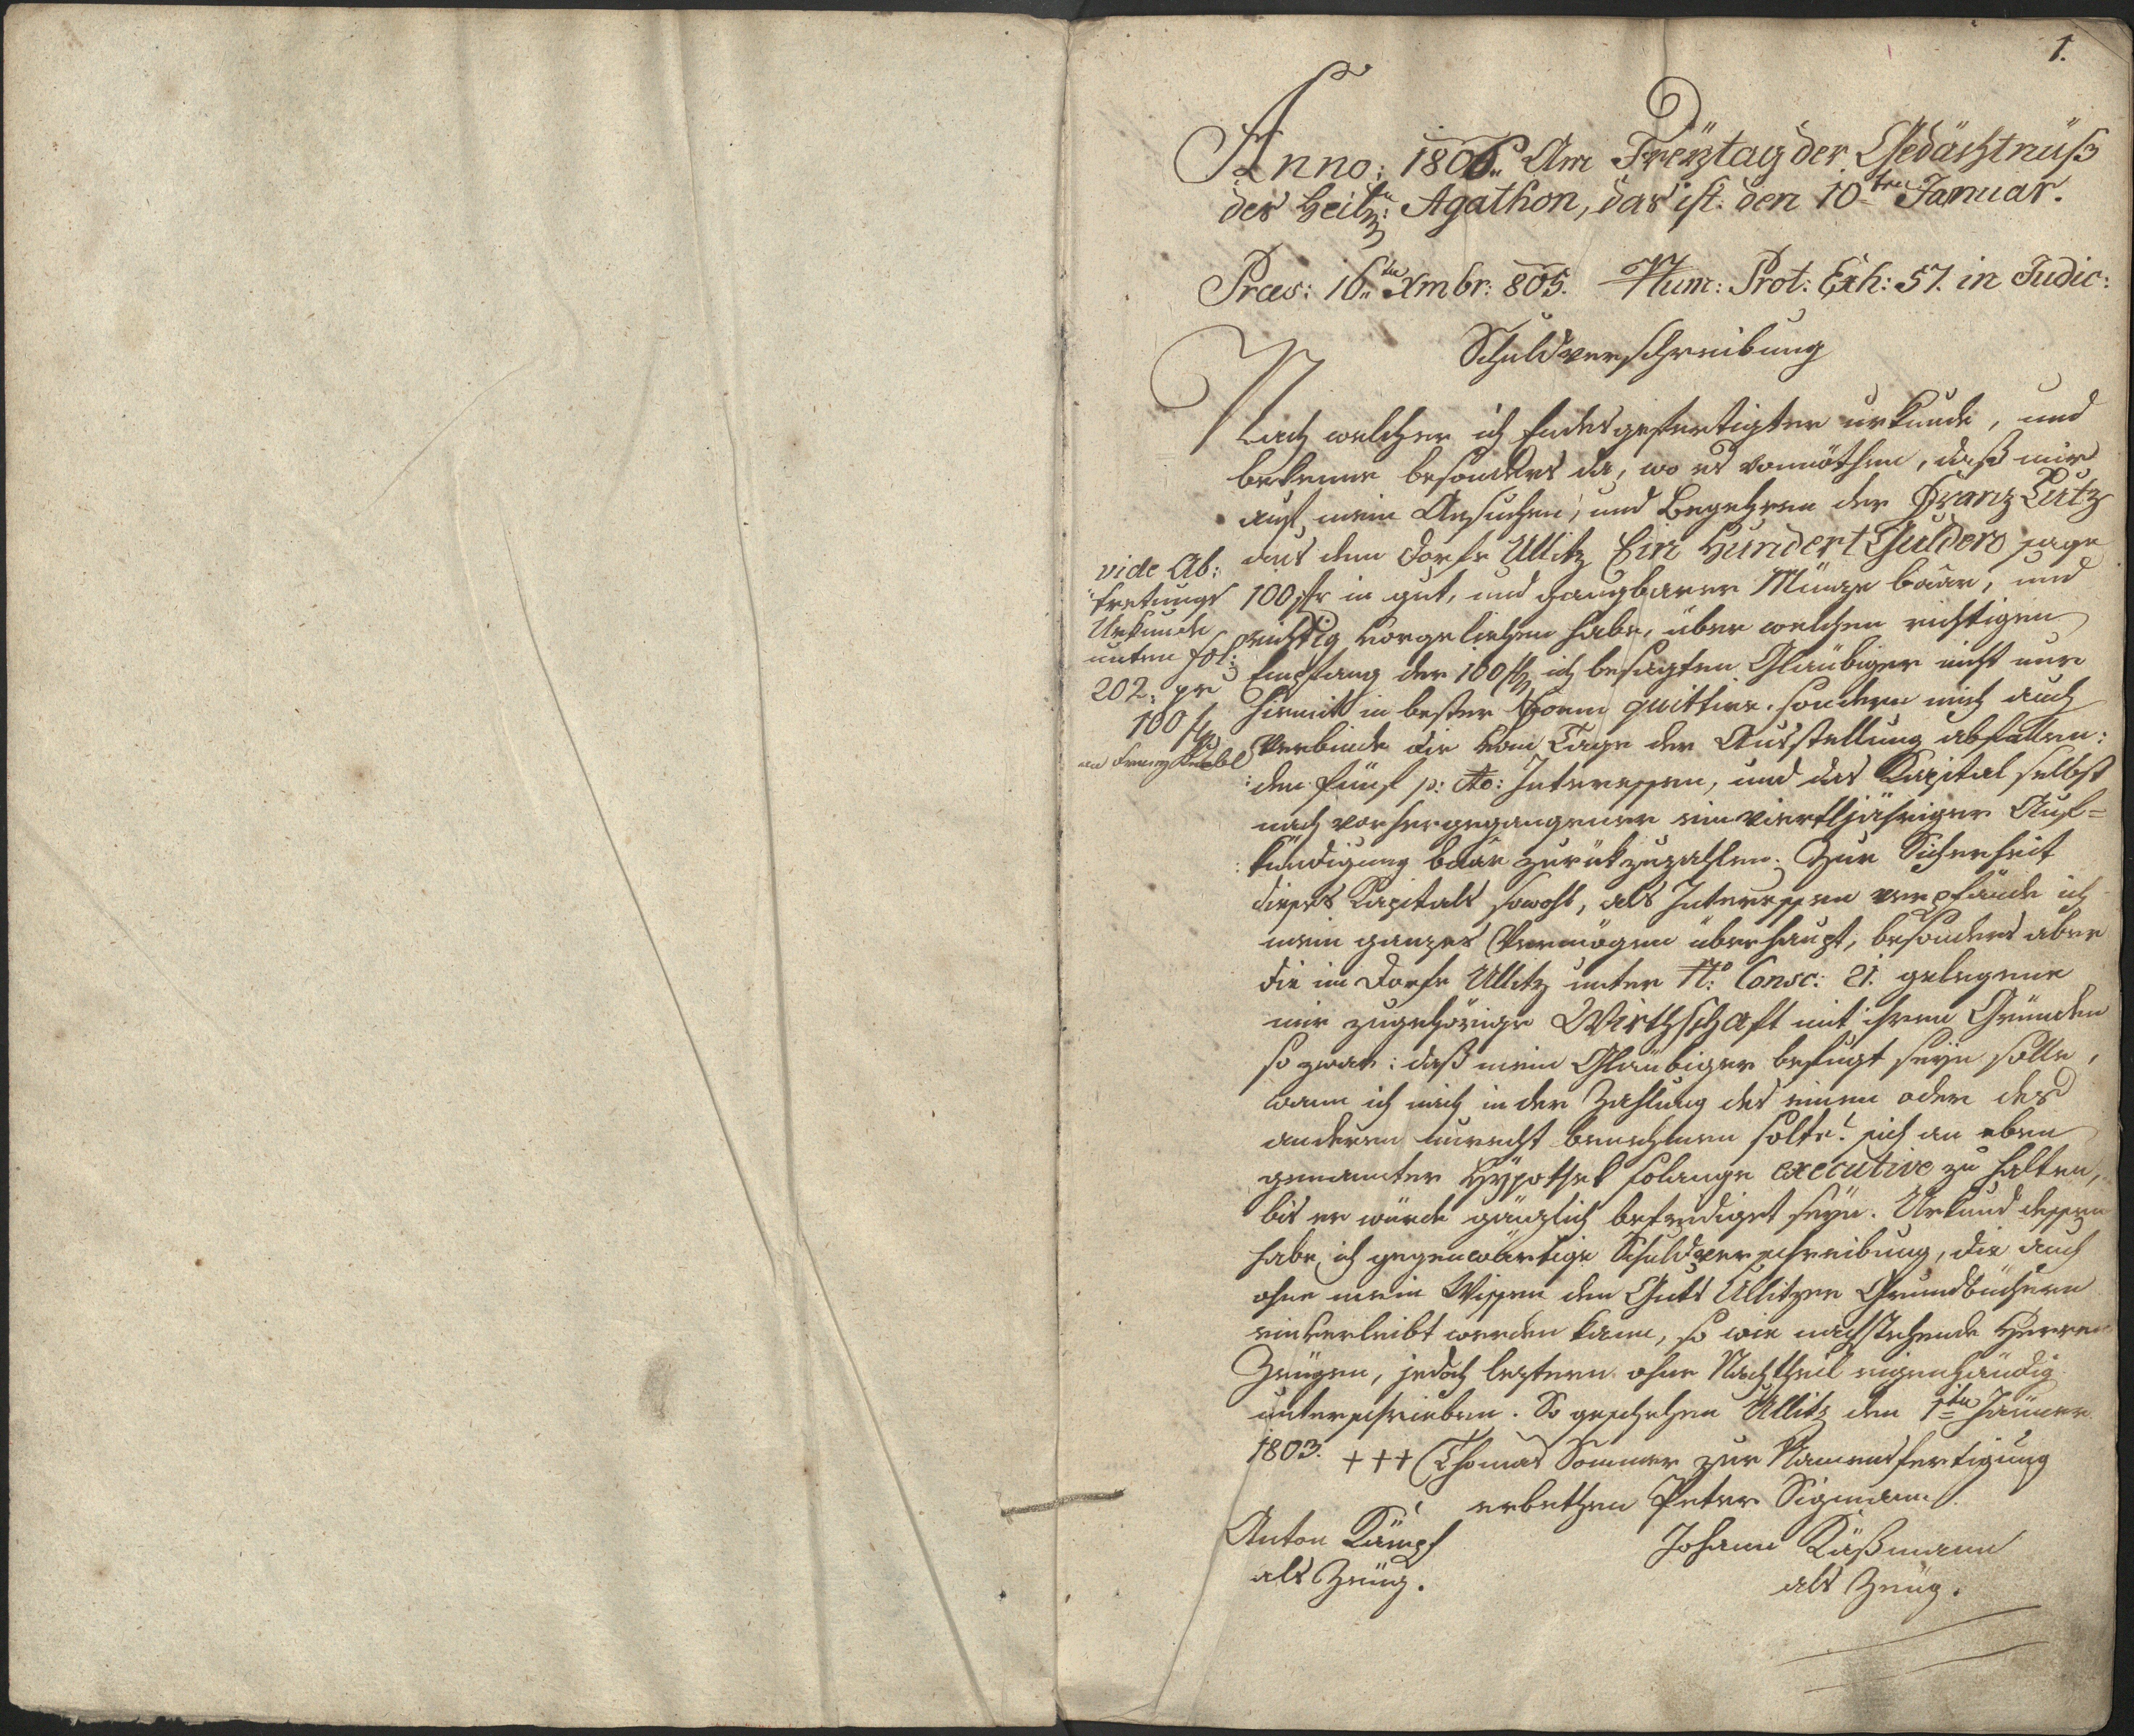 1.
Anno: 1806. Am Freÿtag der Gedächtnüß
des Heil: Agathon, das ist. den 10ten Januar.
Præs: 16ten Xmbr: 805. Num: Prot: Exh: 57. in Judic:
Schuldverschreibung
Nach welcher ich Endesgefertigter urkunde, und
bekenne besonders da, wo es vonnöthen, daß mir
auf mein Ansuchen, und Begehren der Franz Lutz
aus dem Dorfe Ullitz Ein Hundert Gulden sage
100 fr in gut, und gangbarer Münze baar, und
richtig vorgeliehen habe, über welchen richtigen
Empfang der 100 f ich besagten Glaübiger nicht nur
hiemit in bester Form quittire. sondern mich auch
verbinde die vom Tage der Ausstellung abfallen:
:den fünf p: Cto: Interessen, und das Kapital selbst
nach vorhergegangener einvierteljähriger Auf=
:kündigung baar zurükzuzahlen. Zur Sicherheit
dieses Kapitals sowohl, als Interessen verpfände ich
mein ganzes Vermögen überhaupt, besonders aber
die im Dorfe Ullitz unter No: Consc: 21. gelegene
mir zugehörige Wirthschaft mit ihren Gründen
so zwar: daß mein Glaübiger befugt seÿn solle,
wann ich mich in der Zahlung des einen oder des
anderen unrecht benehmen solte! sich an eben
genannter Hÿpothek solange executive zu halten,
bis er würde gänzlich befriediget seÿn. Urkund dessen
habe ich gegenwärtige Schuldverschreibung, die auch
ohne mein Wissen den Guts Ullitzer Grundbüchern
einverleibt werden kann, so wie nachstehende Herren
Zeugen, jedoch leztere ohne Nachtheil eigenhändig
unterschrieben. So geschehen Ullitz den 1ten Jänner
1803. +++ Thomas Sommer zur Namensfertigung
erbethen Peter Sigmann.
Anton Kämpf
als Zeüg.
Johann Käßmann
als Zeüg.
vide Ab:
:tretungs
Urkunde
unten fol:
202. pr
100 f
an Franz